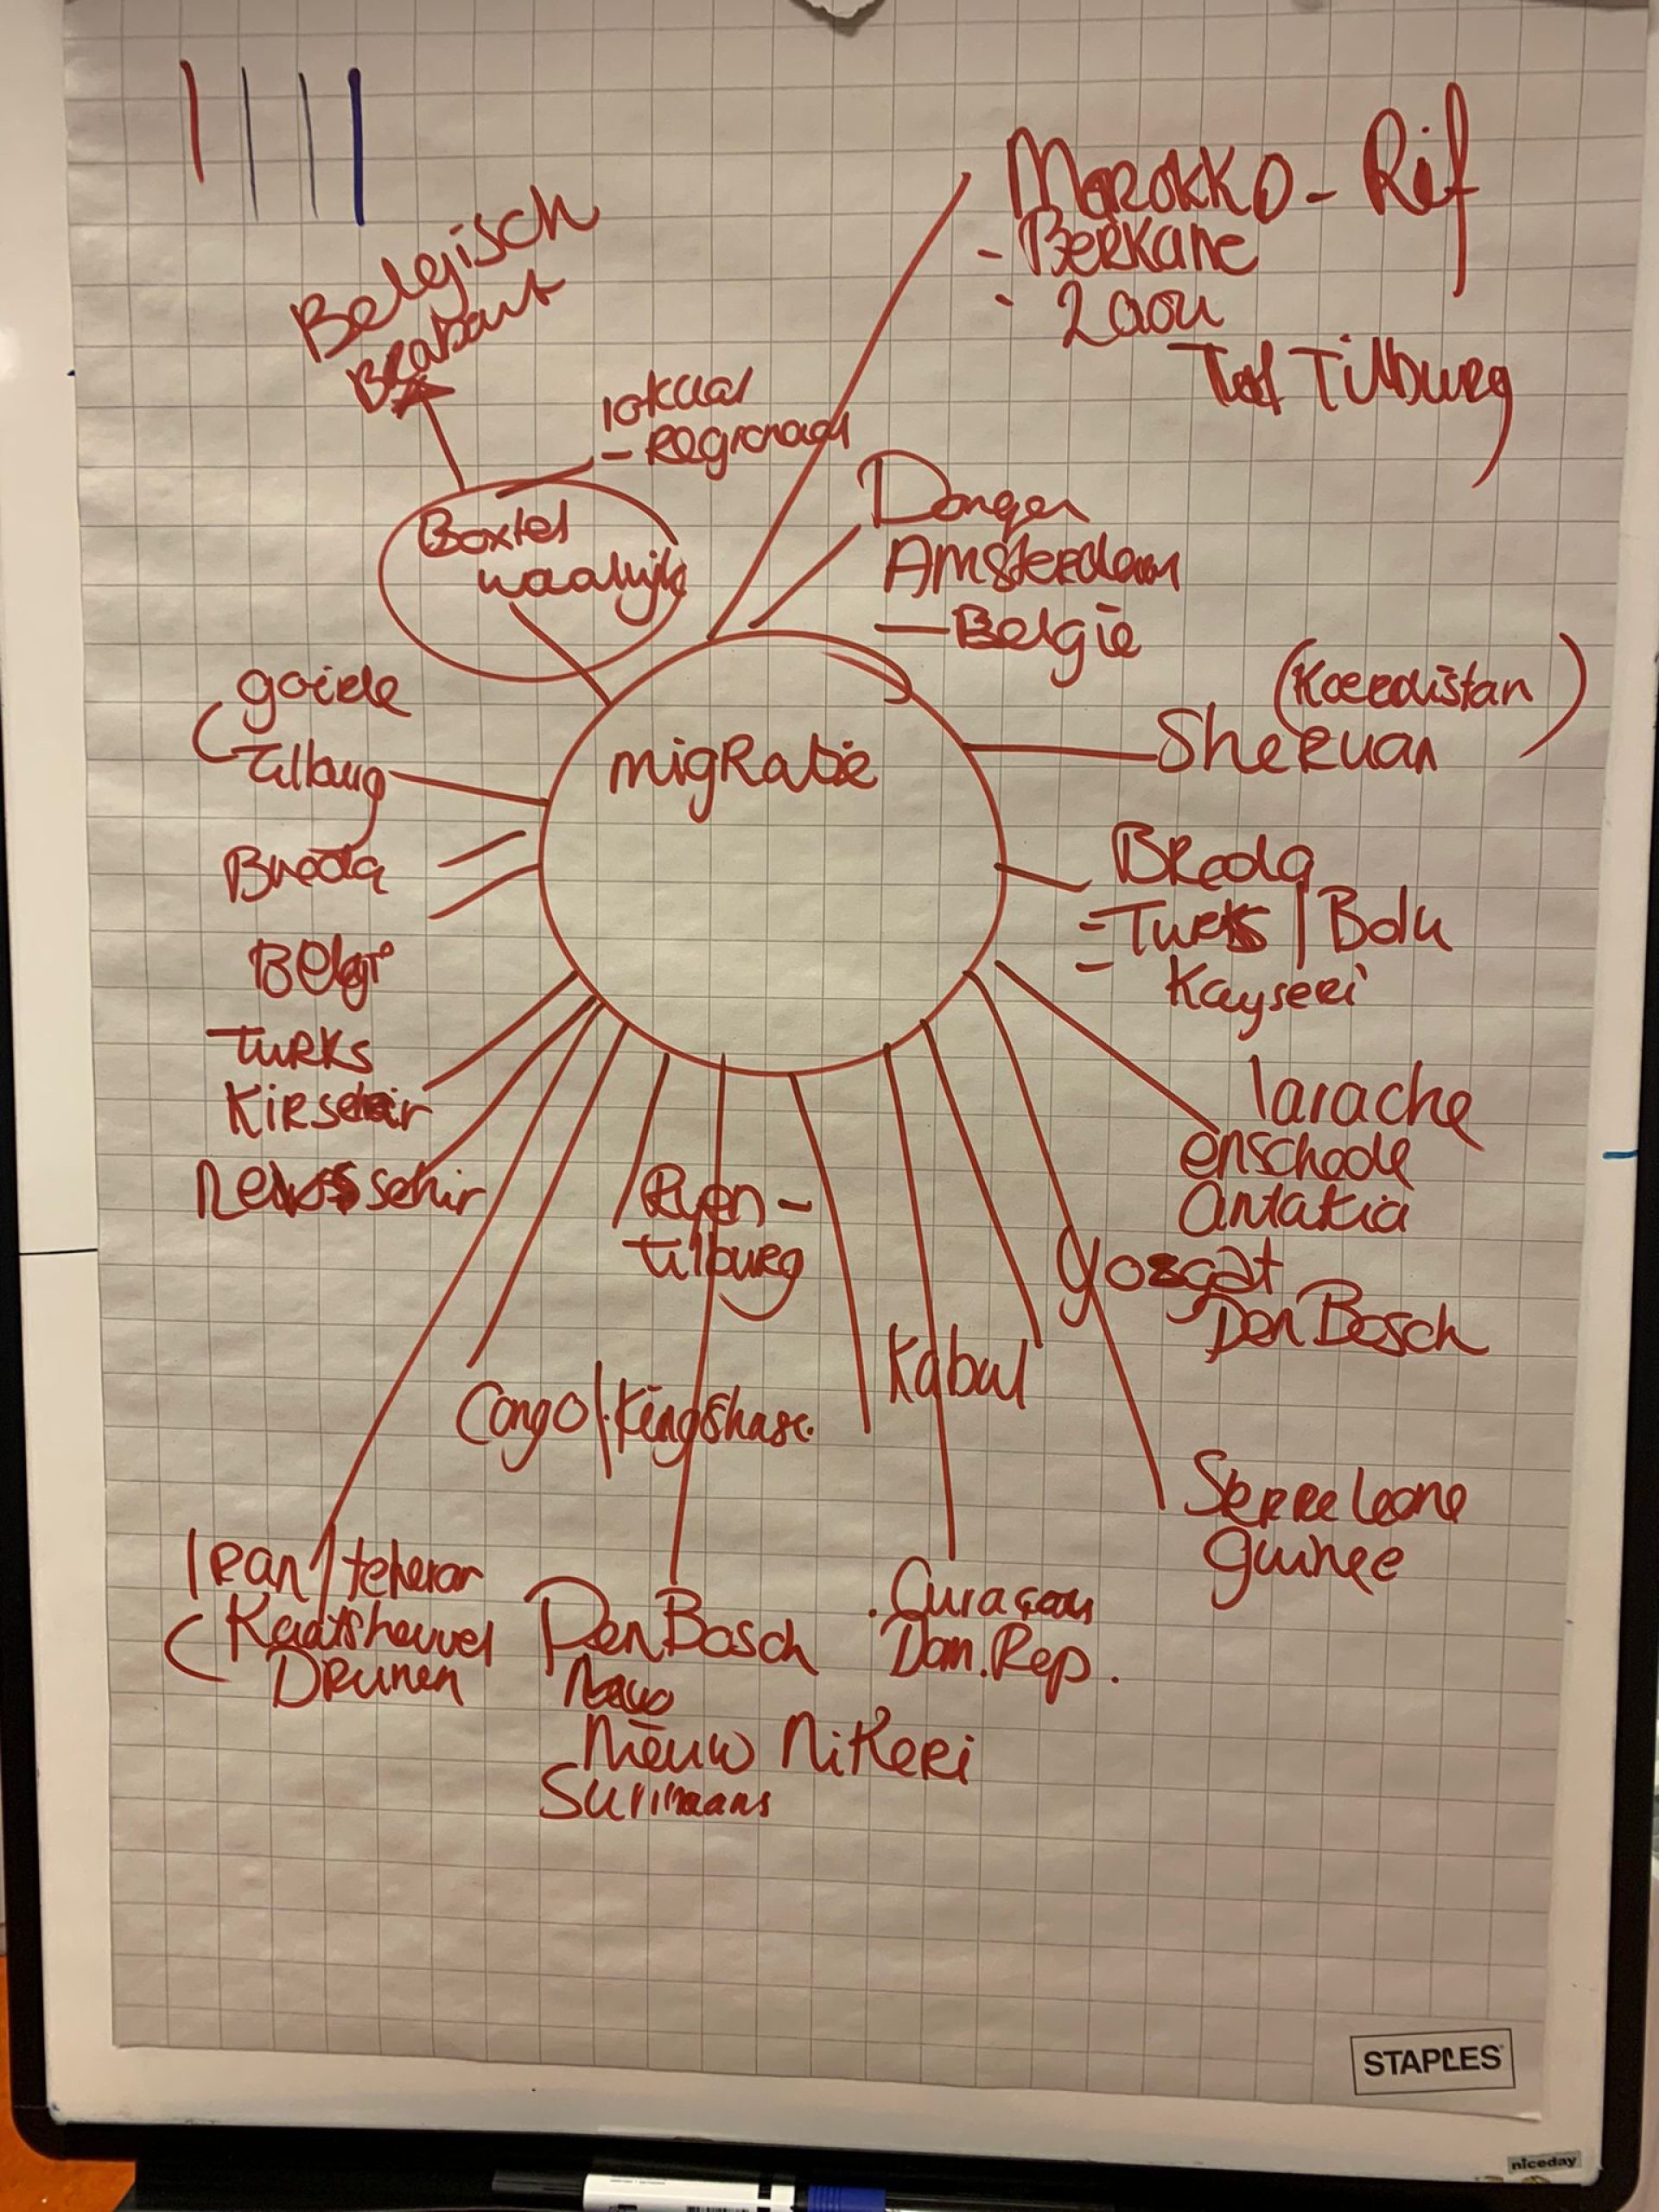 Marokko - Rif
- Berkane
Tilburg
Belgisch
Brabant
lokaal
- Regionaal
Dongen
Amsterdam
- België
Boxtel
waalwijk
(Koerdistan)
Sheruan
migratie
goirle
Tilburg
Breda
Breda
- Turks | Bolu
- Kayseri
België
Turks
Kirsehir
sehir
larache
enschede
antakia
Ryen -
tilburg
yozgat
Den Bosch
Kabul
Congo | Kingshase.
Serre leone
guinee
Iran / teheran
Kaatsheuvel
Drunen
Den Bosch
Nieuw Nikeri
Surinaams
. Curaçau
Dom. Rep.
STAPLES
niceday